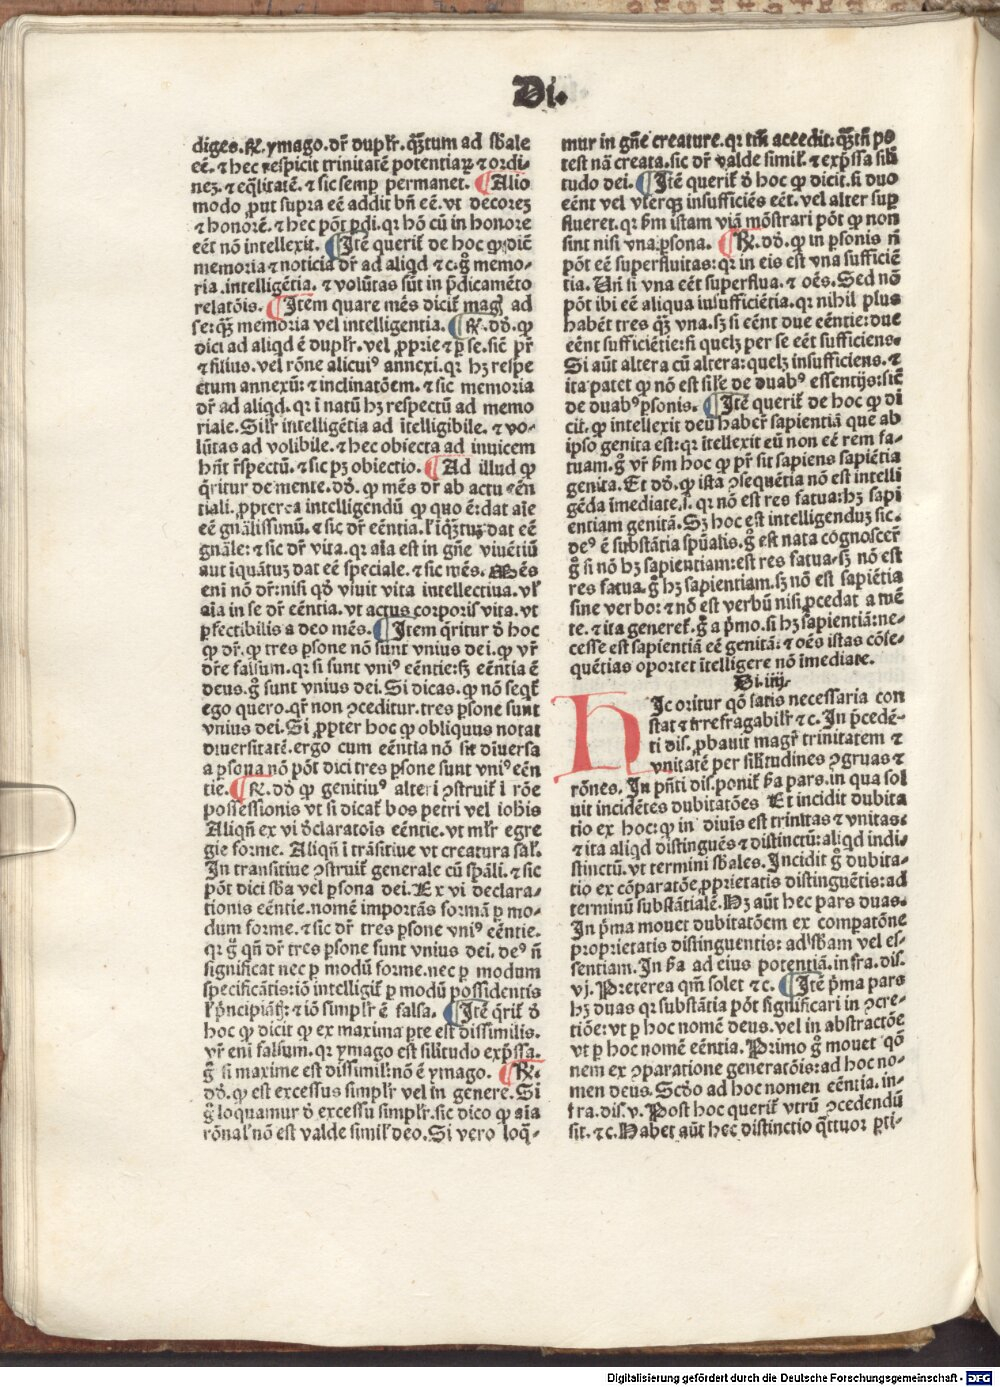 Di.
diges. R. ymago. dr̄ duplr̄. q̄ȝtum ad sb̄ale
eē. ⁊ hec respicit trinitatē potentiaꝝ ⁊ ordi-
neȝ. ⁊ eq̄litatē. ⁊ sic semp permanet. ¶ Alio
modo ꝓut supra eē addit bn̄ eē. vt decoreȝ
⁊ honorē. ⁊ hec pōt ꝑdi. qr hō cū in honore
eēt nō intellexit. ¶ Itē querit̄ de hoc ꝙ diē
memoria ⁊ noticia dr̄ ad aliqd ⁊ c. gͦ memo-
ria. intelligētia. ⁊ volūtas sūt in p̄dicamēto
relatōis. ¶ Item quare mēs dicit̄ magꝭ ad
se: qȝ memoria vel intelligentia. ¶ R. dō. ꝙ
dici ad aliqd ē duplr̄. vel ꝓprie ⁊ ꝑ se. sic̄ pr̄
⁊ filius. vel rōne alicuiꝰ annexi. qr hȝ respe
ctum annexū: ⁊ inclinatōem. ⁊ sic memoria
dr̄ ad aliqd. qr ī natū hȝ respectū ad memo
riale. Silr̄ intelligētia ad ītelligibile. ⁊ vo-
lūtas ad volibile. ⁊ hec obiecta ad inuicem
hn̄t r̄spectū. ⁊ sic pȝ obiectio. ¶ Ad illud ꝙ
q̄ritur de mente. dō. ꝙ mēs dr̄ ab actu eēn
tiali. ꝓpterea intelligendū ꝙ quo ē: dat aīe
eē gn̄alissimū. ⁊ sic dr̄ eēntia. ł īq̄ȝtuȝ dat eē
gn̄ale: ⁊ sic dr̄ vita. qr aīa est in gn̄e viuētiū
aut īquātuȝ dat eē speciale. ⁊ sic mēs. Mēs
eni nō dr̄: nisi qd̄ viuit vita intellectiua. vł
aīa in se dr̄ eēntia. vt actus corporis vita. vt
ꝑfectibilis a deo mēs. ¶ Item q̄ritur d̄ hoc
ꝙ dr̄. ꝙ tres ꝑsone nō sunt vnius dei. ꝙ vr̄
dr̄e falsum. qr si sunt vniꝰ eēntie: sȝ eēntia ē
deus. gͦ sunt vnius dei. Si dicas. ꝙ nō seqt̄
ego quero. qr̄ non ꝯceditur. tres ꝑsone sunt
vnius dei. Si ꝓpter hoc ꝙ obliquus notat
diuersitatē. ergo cum eēntia nō sit diuersa
a ꝑsona nō pōt dici tres ꝑsone sunt vniꝰ eēn
tie. ¶ R. dō ꝙ genitiuꝰ alteri ꝯstruit̄ ī rōe
possessionis vt si dicat̄ bos petri vel iohis
Aliqn̄ ex vi d̄claratois eēntie. vt mlr̄ egre
gie forme. Aliqn̄ ī trāsitiue vt creatura sal̄.
In transitiue ꝯstruit̄ generale cū sp̄ali. ⁊ sic
pōt dici sb̄a vel ꝑsona dei. Ex vi declara-
tionis eēntie. nomē importās formā ꝑ mo-
dum forme. ⁊ sic dr̄ tres ꝑsone vniꝰ eēntie.
qr gͦ qn̄ dr̄ tres ꝑsone sunt vnius dei. deꝰ n̄
significat nec ꝑ modū forme. nec ꝑ modum
specificātis: iō intelligit̄ ꝑ modū possidentis
ł p̄ncipiāt̄: ⁊ iō simplr̄ ē falsa. ¶ Itē q̄rit̄ d̄
hoc ꝙ dicit ꝙ ex maxima ꝑte est dissimilis.
vr̄ eni falsum. qr ymago est silitudo exp̄ssa.
gͦ si maxime est dissimil̄: nō ē ymago. ¶ R.
dō. ꝙ est excessus simplr̄ vel in genere. Si
gͦ loquamur d̄ excessu simplr̄. sic dico ꝙ aīa
rōnal̄ nō est valde simil̄ deo. Si vero loq̄-
mur in gn̄e creature. qr tm̄ accedit: q̄ȝtū po
test nā creata. sic dr̄ valde simil̄ ⁊ exp̄ssa sili
tudo dei. ¶ Itē querit̄ d̄ hoc ꝙ dicit. si duo
eēnt vel vterqȝ insufficiēs eēt. vel alter suꝑ
flueret. qr ꝑm istam viā mōstrari pōt ꝙ non
sint nisi vna ꝑsona. ¶ R. dō. ꝙ in ꝑsonis n̄
pōt eē superfluitas: qr in eis est vna sufficiē
tia. Un̄ si vna eēt superflua. ⁊ oēs. Sed nō
pōt ibi eē aliqua insufficiētia. qr nihil plus
habēt tres qȝ vna. sȝ si eēnt due eēntie: due
eēnt sufficiētie: si quelȝ per se eēt sufficiens.
Si aūt altera cū altera: quelȝ insufficiens. ⁊
ita patet ꝙ nō est sile de duabꝰ essentijs: sic̄
de duabꝰ ꝑsonis. ¶ Itē querit̄ de hoc ꝙ di
cit. ꝙ intellexit deū haber̄ sapientiā que ab
ipso genita est: qr ītellexit eū non eē rem fa-
tuam. gͦ vr̄ ꝑm hoc ꝙ pr̄ sit sapiens sapiētia
genita. Et dō. ꝙ ista ꝯsequētia nō est intelli
gēda īmediate. s. qr nō est res fatua: hȝ sapi
entiam genitā. Sȝ hoc est intelligenduȝ sic.
deꝰ ē substātia spūalis. gͦ est nata cognoscer̄
gͦ si nō hȝ sapientiam: est res fatua. sȝ nō est
res fatua. gͦ hȝ sapientiam. sȝ nō est sapiētia
sine verbo: ⁊ nō est verbū nisi ꝓcedat a mē
te. ⁊ ita generet̄. gͦ a p̄mo. si hȝ sapientiā: ne-
cesse est sapientiā eē genitā: ⁊ oēs istas cōse-
quētias oportet ītelligere nō īmediate.
Di. iiij.
HIc oritur qō satis necessaria con
stat ⁊ irrefragabilr̄ ⁊ c. In p̄cedē-
ti dis. ꝓbauit magr̄ trinitatem ⁊
vnitatē per silitudines ꝯgruas ⁊
rōnes. In p̄nti dis. ponit̄ scd̄a pars. in qua sol
uit incidētes dubitatōes Et incidit dubita
tio ex hoc: ꝙ in diuīs est trinitas ⁊ vnitas.
⁊ ita aliqd distinguēs ⁊ distinctū: aliqd indi-
stinctū. vt termini sb̄ales. Incidit gͦ dubita-
tio ex cōparatōe ꝓprietatis distinguētis: ad
terminū substātialē. Hȝ aūt hec pars duas.
In p̄ma mouet dubitatōem ex compatōne
proprietatis distinguentis: ad sb̄am vel es-
sentiam. In scd̄a ad eius potentiā. infra. dis.
vj. Preterea qm̄ solet ⁊ c. ¶ Itē p̄ma pars
hȝ duas qr substātia pōt significari in ꝯcre-
tiōe: vt ꝑ hoc nomē deus. vel in abstractōe
vt ꝑ hoc nomē eēntia. Primo gͦ mouet qō
nem ex ꝯparatione generatōis: ad hoc no-
men deus. Scd̄o ad hoc nomen eēntia. in-
fra. dis. v. Post hoc querit̄ vtrū ꝯcedendū
sit. ⁊ c. Habet aūt hec distinctio q̄ttuor ꝑti-
Digitalisierung gefördert durch die Deutsche Forschungsgemeinschaft - DFG